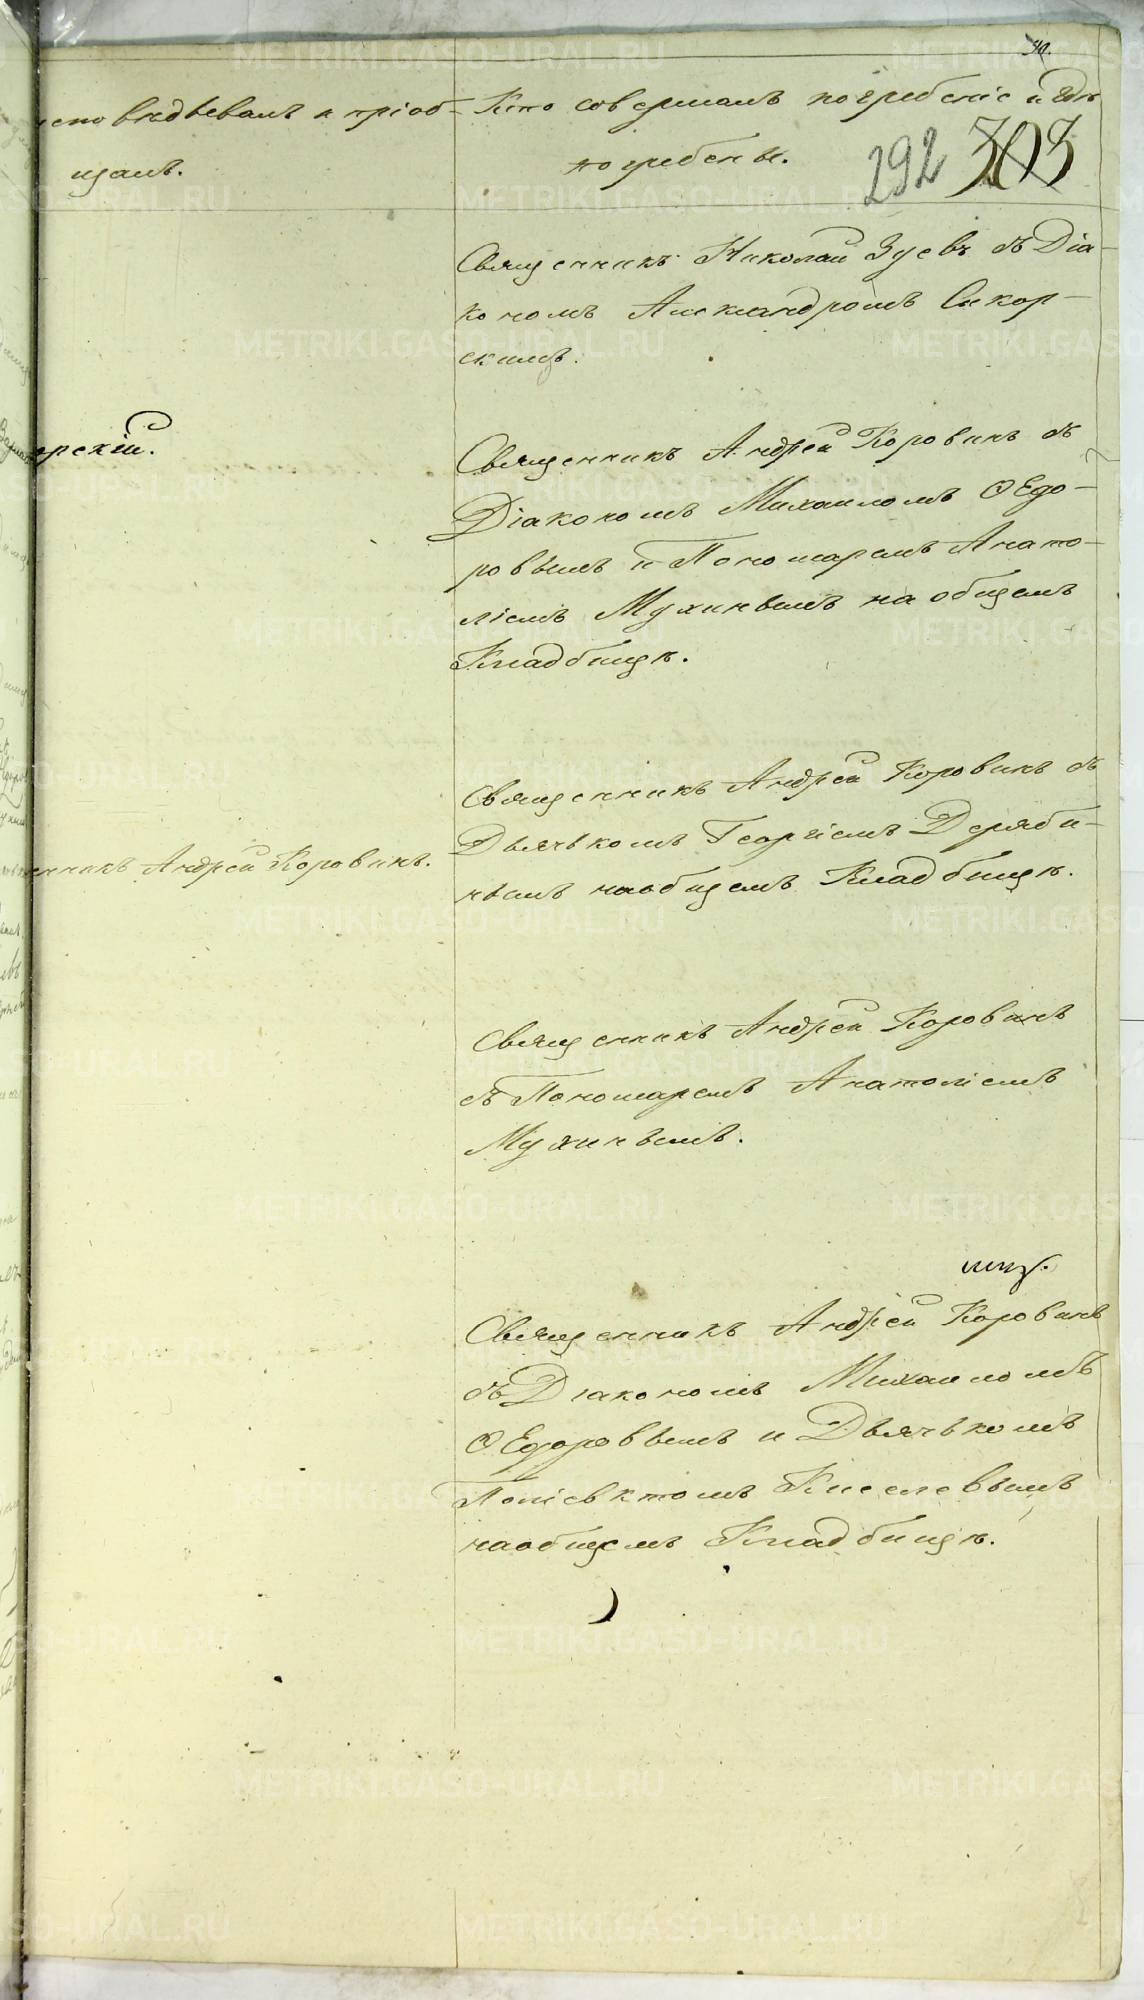 исповѣдывалъ и пріоб-
щалъ.
Кто совершалъ погребеніе и гдѣ
погребены.
292 303
Священникъ Николай Зуевъ съ Діа-
кономъ Александромъ Сикор-
скимъ.
ерскій.
Священникъ Андрей Коровинъ съ
Діакономъ Михаиломъ Ѳедо-
ровымъ и Пономаремъ Анато-
ліемъ Мухинымъ на общемъ
Кладбищѣ.
Священникъ Андрей Коровинъ съ
Дьячькомъ Георгіемъ Деряби-
нымъ на общемъ Кладбищѣ.
енникъ Андрей Коровинъ.
Священникъ Андрей Коровинъ
съ Пономаремъ Анатоліемъ
Мухинымъ.
Священникъ Андрей Коровинъ
съ Діакономъ Михаиломъ
Ѳедоровымъ и Дьячькомъ
Поліевктомъ Киселевымъ
на общемъ Кладбищѣ.
METRIKI.GASO-URAL.RU